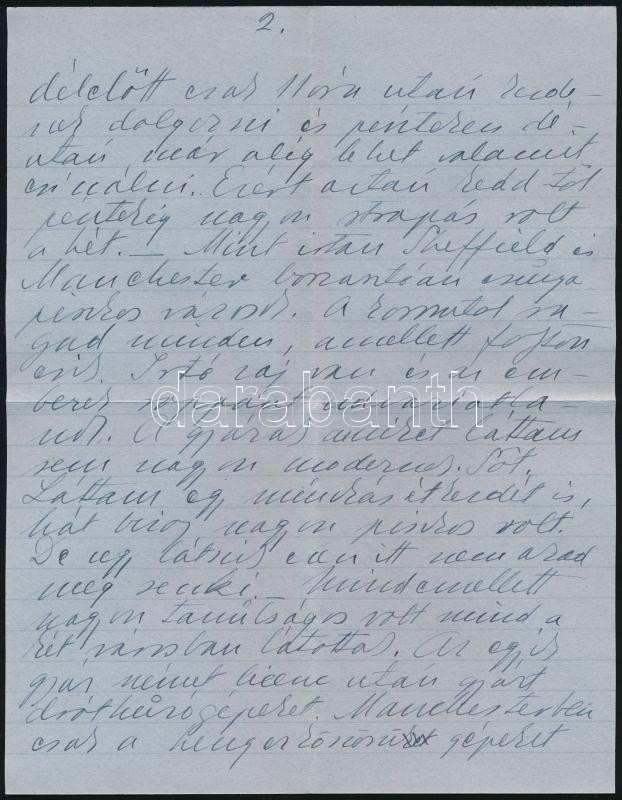 2.
délelőtt csak 11 óra után kezde-
nek dolgozni és pénteken dé-
után már alig lehet valamit
csinálni. Ezért aztán kedd-től
péntekig nagyon strapás volt
a hét. — Mint írtam Sheffield és
Manchester borzasztóan csúnya
piszkos városok. A koromtól ra-
gad minden, amellett folyton
esik. Irtó zaj van és az em-
berek roppant udvariatla-
nok. A gyárak amiket láttam
sem nagyon modernek. Sőt.
Láttam egy munkás étkezdét is,
hát bizoj nagyon piszkos volt.
De úgy látszik ezen itt nem akad
meg senki. — Mindemellett
nagyon tanulságos volt mind a
két városban látottak. Az egyik
gyár német licenc után gyárt
dróthúzógépeket. Manchesterben
csak a gépeket
darabanth